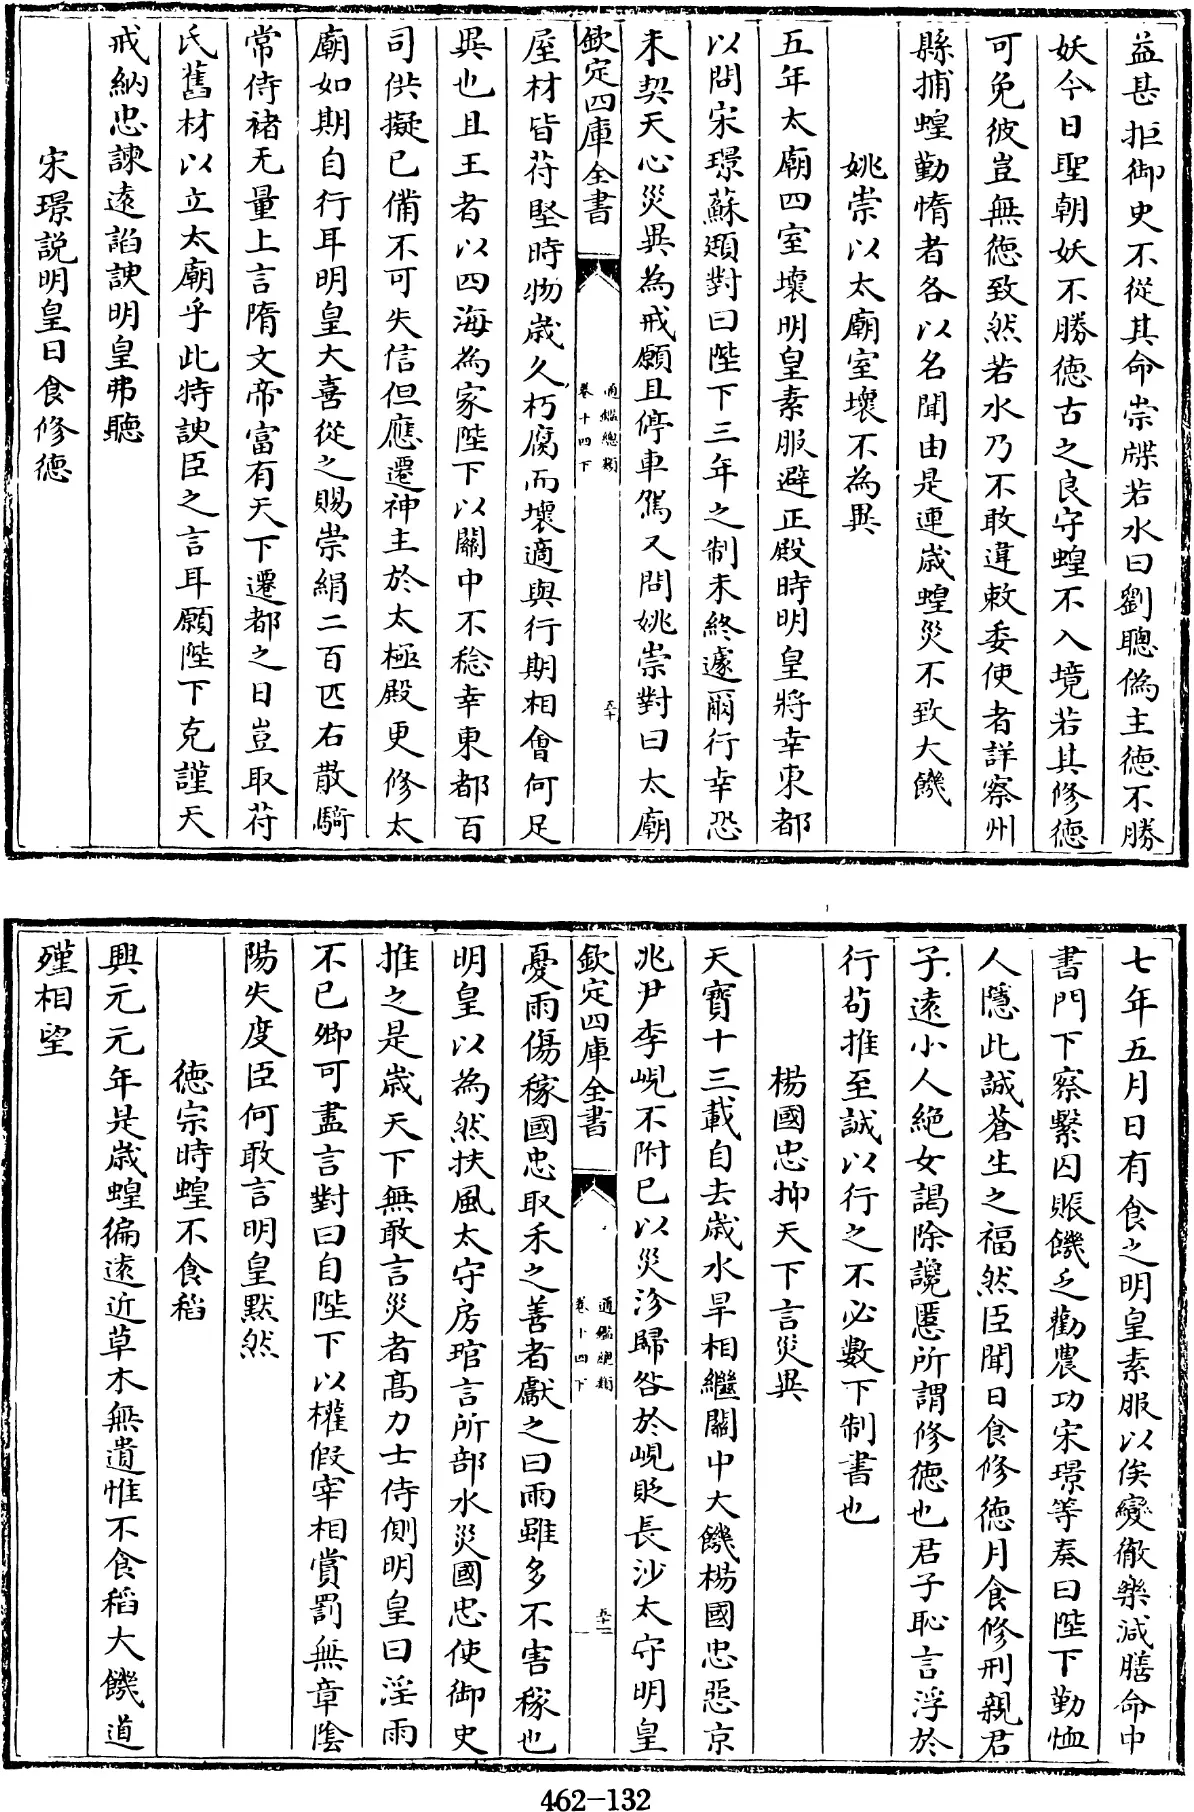 益甚拒御史不從其命崇牒若水曰劉聰偽主德不勝
妖今日聖朝妖不勝德古之良守蝗不入境若其修德
可免彼豈無德致然若水乃不敢違敕委使者詳察州
縣捕蝗勤惰者各以名聞由是連歲蝗災不致大饑
姚崇以太廟室壞不為異
五年太廟四室壞明皇素服避正殿時明皇將幸東都
以問宋璟蘇頲對曰陛下三年之制未終遽爾行幸恐
未契天心災異為戒願且停車駕又問姚崇對曰太廟
欽定四庫全書
通鑑總類
卷十四下
五十
屋材皆苻堅時物歲久朽腐而壞適與行期相會何足
異也且王者以四海為家陛下以關中不稔幸東都百
司供擬已備不可失信但應遷神主於太極殿更修太
廟如期自行耳明皇大喜從之賜崇絹二百匹右散騎
常侍褚无量上言隋文帝富有天下遷都之日豈取苻
氏舊材以立太廟乎此特諛臣之言耳願陛下克謹天
戒納忠諫遠諂諛明皇弗聽
宋璟說明皇日食修德
七年五月日有食之明皇素服以俟變徹樂減膳命中
書門下察繫囚賑饑乏勸農功宋璟等奏曰陛下勤恤
人隱此誠蒼生之福然臣聞日食修德月食修刑親君
子遠小人絕女謁除讒慝所謂修德也君子恥言浮於
行苟推至誠以行之不必數下制書也
楊國忠抑天下言災異
天寶十三載自去歲水旱相繼關中大饑楊國忠惡京
兆尹李峴不附已以災沴歸咎於峴貶長沙太守明皇
欽定四庫全書
通鑑總類
卷十四下
五十一
憂雨傷稼國忠取禾之善者獻之曰雨雖多不害稼也
明皇以為然扶風太守房琯言所部水災國忠使御史
推之是歲天下無敢言災者高力士侍側明皇曰淫雨
不已卿可盡言對曰自陛下以權假宰相賞罰無章陰
陽失度臣何敢言明皇默然
德宗時蝗不食稻
興元元年是歲蝗徧遠近草木無遺惟不食稻大饑道
殣相望
462-132